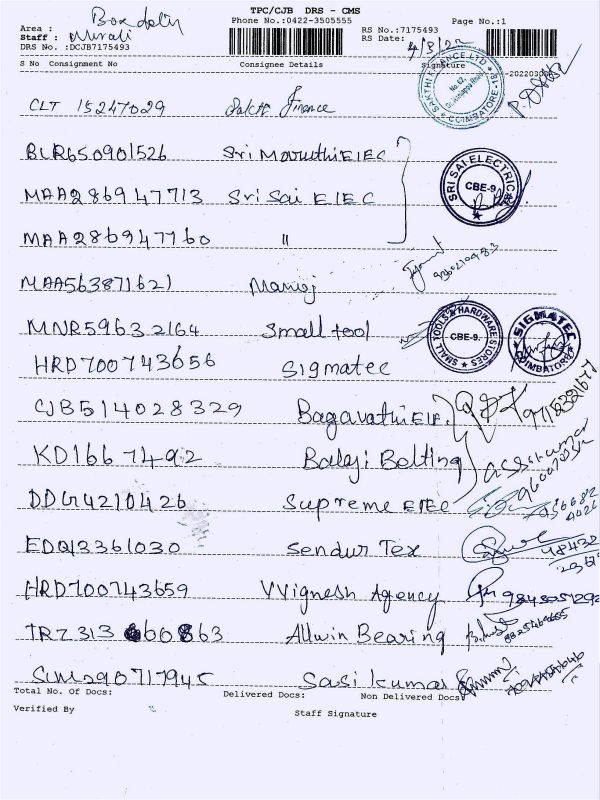 TPC/CJB DRS - CMS
Area :
Phone No.:0422-3505555
Page No.:1
Staff : Murali
RS No.:7175493
DRS No. :DCJB7175493
RS Date: 4/3/22
S No Consignment No Consignee Details Signature
CLT 15247029 Sakthi Finance
SAKTHI FINANCE LTD COIMBATORE-18
BLR650901526 Sri Maruthi ElEC
MAA286947713 Sri Sai ElEC
SRI SAI ELECTRIC CBE-9.
MAA286947760 "
MAA563871621 Manoj
MNR59632164 Small tool
SMALL TOOLS & HARDWARE STORES CBE-9.
SIGMATEC COIMBATORE
HRD700743656 Sigmatec
CJB514028329 Bagavathi ElE.
KD1667492 Balaji Bolting
Sasikumar
DDG4210426 Supreme ElEC
EDQ13361030 Sendur Tex
HRD700743659 VVignesh Agency
TRZ313 Allwin Bearing
290717945 Sasi kumar
Total No. Of Docs: Delivered Docs: Non Delivered Docs:
Verified By Staff Signature